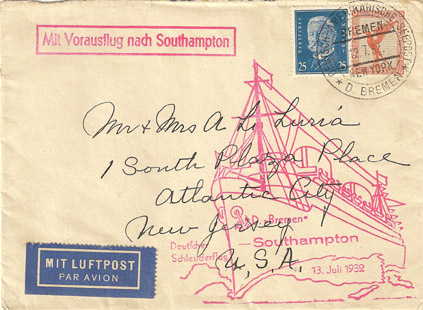 Mit Vorausflug nach Southampton
DEUTSCHES REICH
25 25
BREMEN
NEW YORK
* D. BREMEN *
Mr & Mrs A L Luria
1 South Plaza Place
Atlantic City
New Jersey
U.S.A.
D. "Bremen"
— Southampton
Deutscher
Schleuderflug
13. Juli 1932
MIT LUFTPOST
PAR AVION